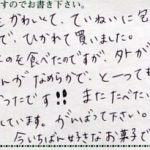 すのでお書き下さい。
もかわいて、ていねいに包
で、ひかれて買いました。
このを食べたのですが、タトが
んがなめらかで、とーっても
ったです!! またたべたい
しています。がんばって下さい。
今いちばん好きなお菓子で